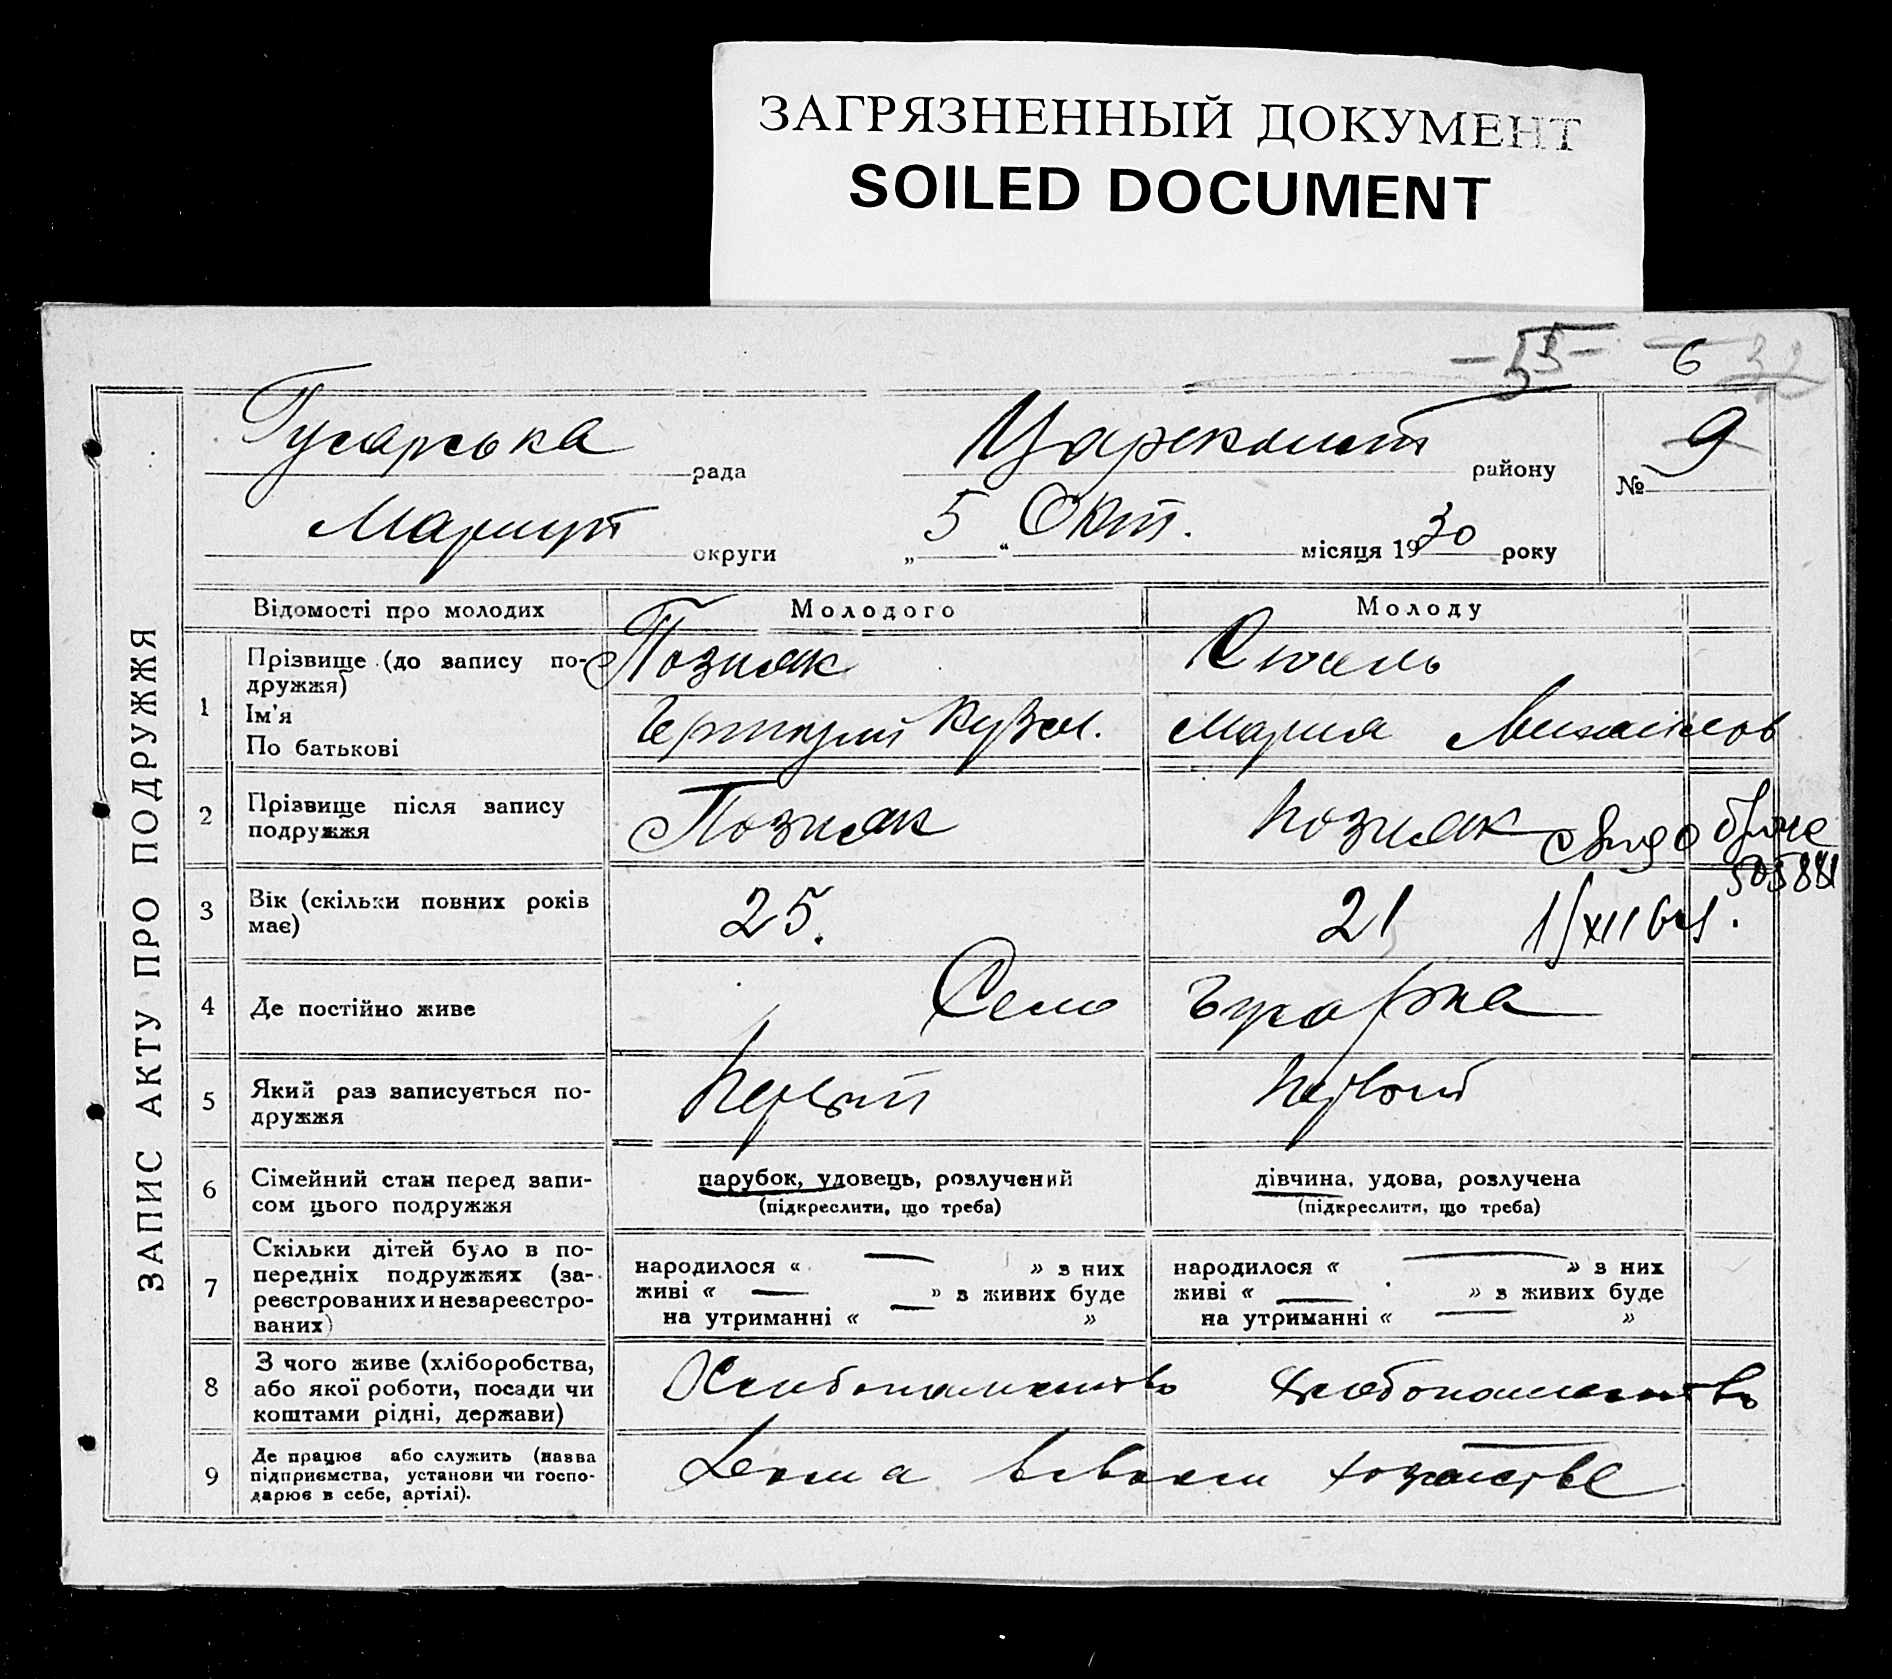 ЗАГРЯЗНЕННЫЙ ДОКУМЕНТ
SOILED DOCUMENT
55 6 32
ЗАПИС АКТУ ПРО ПОДРУЖЖЯ
Гусарська рада Царекконст району № 9
Мариуп округи „ 5 “ Окт. місяця 1930 року
Відомості про молодих Молодого Молоду
1 Прізвище (до запису подружжя) Позняк
Ім'я
По батькові Кузм. Мария
2 Прізвище після запису подружжя Позняк Позняк свид о браке
505881
3 Вік (скільки повних років має) 25. 21 1/XII 61 г.
4 Де постійно живе Село Гусарка
5 Який раз записується подружжя Первый Первый
6 Сімейний стан перед записом цього подружжя парубок, удовець, розлучений дівчина, удова, розлучена
(підкреслити, що треба) (підкреслити, що треба)
7 Скільки дітей було в попередніх подружжях (зареєстрованих и незареєстрованих) народилося « — » з них народилося « — » з них
живі « — » з живих буде живі « — » з живих буде
на утриманні « — » на утриманні « — »
8 З чого живе (хліборобства, або якої роботи, посади чи коштами рідні, держави) Хлебопашество Хлебопашество
9 Де працює або служить (назва підприємства, установи чи господарює в себе, артілі). Дома в своем хозяйстве